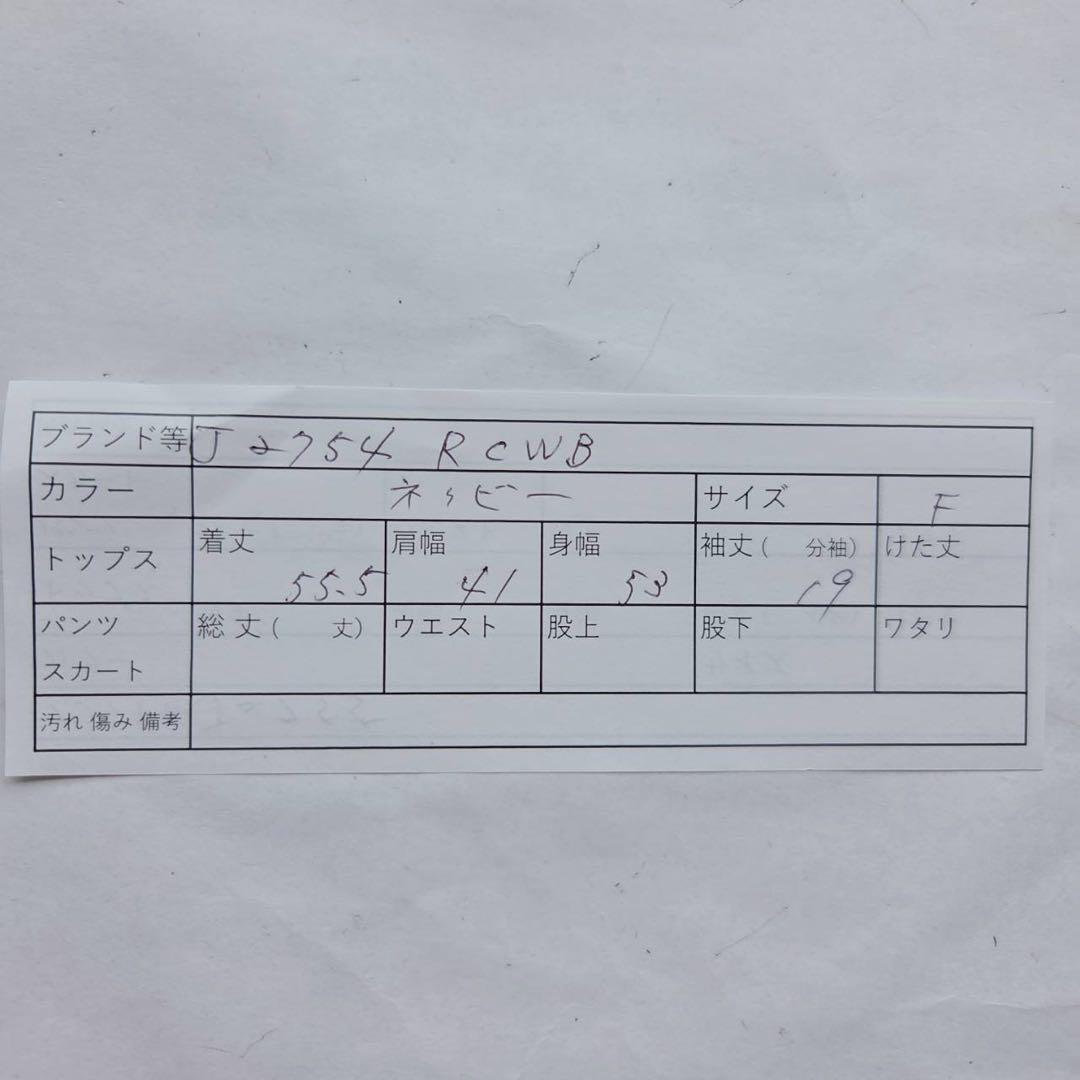 ブランド等 J2754 RCWB
カラー ネッビー サイズ F
トップス 着丈 55.5 肩幅 41 身幅 53 袖丈(　分袖) 19 けた丈
パンツ 総丈(　丈) ウエスト 股上 股下 ワタリ
スカート
汚れ 傷み 備考